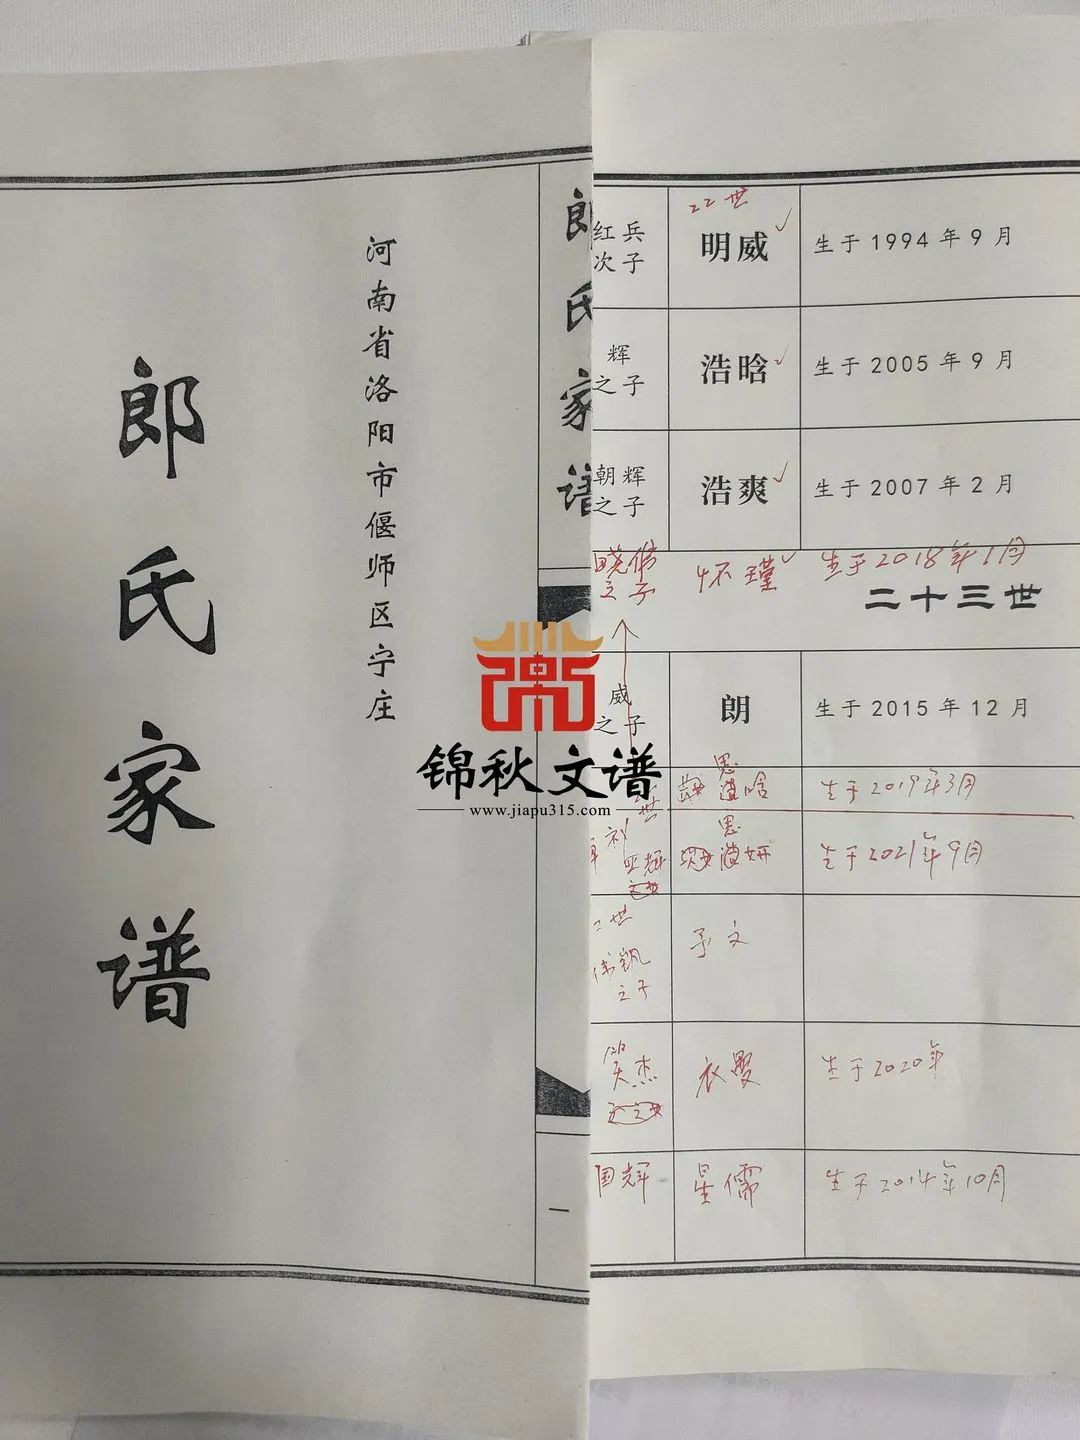 河南省洛阳市偃师区宁庄
郎氏家谱
郎氏家谱
一
22世
红兵
次子
明威
生于1994年9月
辉
之子
浩晗
生于2005年9月
朝辉
之子
浩爽
生于2007年2月
晓伟
之子
怀瑾
生于2018年1月
二十三世
威
之子
朗
生于2015年12月
思
晗
生于2019年3月
亚辉
思
妍
生于2021年9月
二世
伟凯
之子
予文
杰
生于2020年
国辉
星儒
生于2014年10月
锦秋文谱
www.jiapu315.com